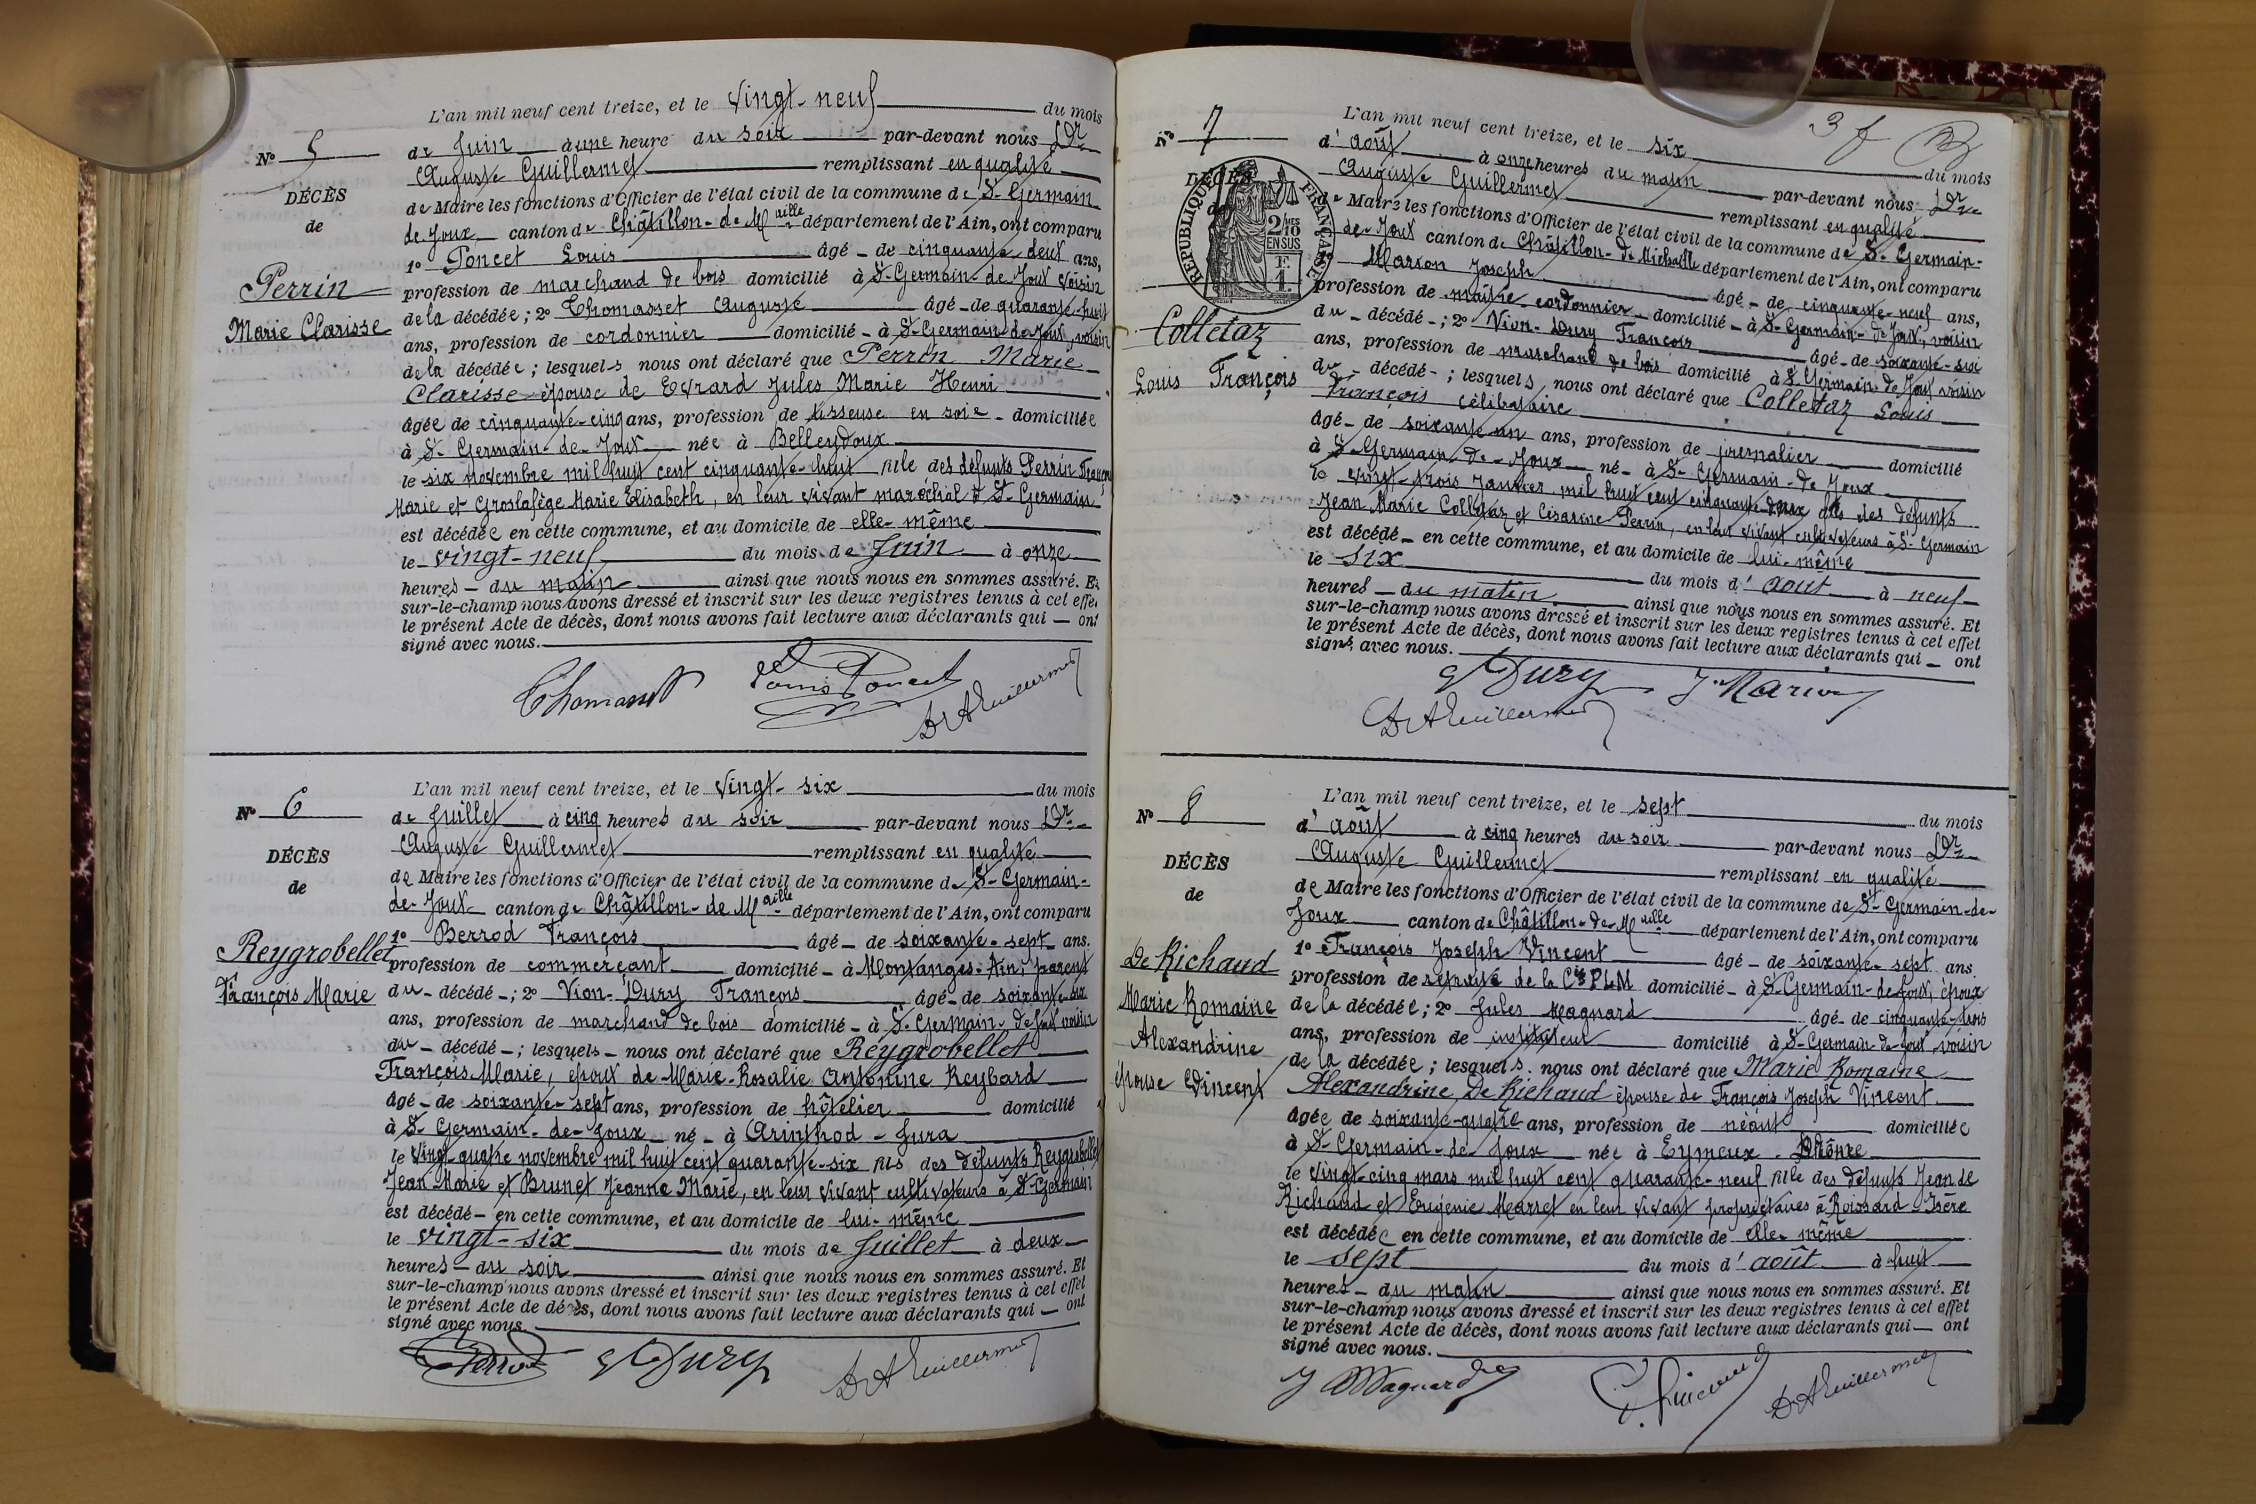 L'an mil neuf cent treize, et le vingt-neuf du mois
N° 5
de Juin à une heure du soir par-devant nous Dr
Auguste Guillermet remplissant en qualité
DÉCÈS
de Maire les fonctions d'Officier de l'état civil de la commune de St-Germain
de
de-Joux canton de Châtillon-de-Maille département de l'Ain, ont comparu
1° Poncet Louis âgé - de cinquante deux ans,
Perrin
profession de marchand de bois domicilié à St-Germain-de-Joux voisin
de la décédée; 2° Thomasset Auguste âgé - de quarante-huit
Marie Clarisse
ans, profession de cordonnier domicilié - à St-Germain-de-Joux, voisin
de la décédée; lesquels nous ont déclaré que Perrin Marie
Clarisse épouse de Evrard Jules Marie Henri
âgée de cinquante-cinq ans, profession de tisseuse en soie - domiciliée
à St-Germain-de-Joux née à Belleydoux
le six novembre mil huit cent cinquante-huit fille des défunts Perrin
Marie et Groslafège Marie Elisabeth, en leur vivant maréchal à St-Germain
est décédée en cette commune, et au domicile de elle-même
le vingt-neuf du mois de Juin à onze
heures - du matin ainsi que nous nous en sommes assuré. Et
sur-le-champ nous avons dressé et inscrit sur les deux registres tenus à cet effet
le présent Acte de décès, dont nous avons fait lecture aux déclarants qui - ont
signé avec nous.
Thomasset Louis Poncet Dr AGuillermet
L'an mil neuf cent treize, et le vingt-six du mois
N° 6
de Juillet à cinq heures du soir par-devant nous Dr
Auguste Guillermet remplissant en qualité
DÉCÈS
de Maire les fonctions d'Officier de l'état civil de la commune de St-Germain-
de
de-Joux canton de Châtillon-de-Maille département de l'Ain, ont comparu
1° Berrod François âgé - de soixante-sept ans.
Reygrobellet
profession de commerçant domicilié - à Montanges-Ain; parent
François Marie
du - décédé -; 2° Vion-Dury François âgé - de soixante-six
ans, profession de marchand de bois domicilié - à St-Germain-de-Joux voisin
du - décédé -; lesquels - nous ont déclaré que Réygrobellet
François Marie, époux de Marie-Rosalie Antonine Reybard
âgé - de soixante-sept ans, profession de hôtelier domicilié
à St-Germain-de-Joux né - à Arinthod - Jura
le vingt-quatre novembre mil huit cent quarante-six fils des défunts Reygrobellet
Jean Marie et Brunet Jeanne Marie, en leur vivant cultivateurs à St-Germain
est décédé - en cette commune, et au domicile de lui-même
le vingt-six du mois de Juillet à deux
heures - du soir ainsi que nous nous en sommes assuré. Et
sur-le-champ nous avons dressé et inscrit sur les deux registres tenus à cet effet
le présent Acte de décès, dont nous avons fait lecture aux déclarants qui - ont
signé avec nous.
Berrod Dury Dr AGuillermet
3 f
L'an mil neuf cent treize, et le six du mois
N° 7
d'août à onze heures du matin par-devant nous Dr
Auguste Guillermet remplissant en qualité
DÉCÈS
RÉPUBLIQUE FRANÇAISE
2/10 EN SUS
F. 1.
de Maire les fonctions d'Officier de l'état civil de la commune de St-Germain-
de-Joux canton de Châtillon-de-Michaille département de l'Ain, ont comparu
Marion Joseph âgé - de cinquante-neuf ans,
profession de maître-cordonnier domicilié - à St-Germain-de-Joux, voisin
Colletaz
du - décédé -; 2° Vion-Dury François âgé - de soixante-six
ans, profession de marchand de bois domicilié à St-Germain-de-Joux voisin
Louis François
du - décédé -; lesquels nous ont déclaré que Colletaz Louis
François célibataire
âgé - de soixante un ans, profession de journalier domicilié
à St-Germain-de-Joux né - à St-Germain-de-Joux
le vingt-trois Janvier mil huit cent cinquante-deux fils des défunts
Jean Marie Colletaz et Césarine Perrin, en leur vivant cultivateurs à St-Germain
est décédé - en cette commune, et au domicile de lui-même
le six du mois d'août à neuf
heures - du matin ainsi que nous nous en sommes assuré. Et
sur-le-champ nous avons dressé et inscrit sur les deux registres tenus à cet effet
le présent Acte de décès, dont nous avons fait lecture aux déclarants qui - ont
signé avec nous.
Dury J. Marion
Dr AGuillermet
L'an mil neuf cent treize, et le sept du mois
N° 8
d'août à cinq heures du soir par-devant nous Dr
Auguste Guillermet remplissant en qualité
DÉCÈS
de Maire les fonctions d'Officier de l'état civil de la commune de St-Germain-de-
de
Joux canton de Châtillon-de-Maille département de l'Ain, ont comparu
1° François Joseph Vincent âgé - de soixante-sept ans.
De Richaud
profession de retraité de la Cie PLM domicilié - à St-Germain-de-Joux, époux
Marie Romaine
de la décédée; 2° Jules Magnard âgé - de cinquante-trois
Alexandrine
ans, profession de instituteur domicilié à St-Germain-de-Joux voisin
de la décédée; lesquels nous ont déclaré que Marie Romaine
épouse Vincent
Alexandrine De Richaud épouse de François Joseph Vincent
âgée de soixante-quatre ans, profession de néant domiciliée
à St-Germain-de-Joux née à Eymeux
le vingt-cinq mars mil huit cent quarante-neuf fille des défunts Jean de
Richaud et Eugénie Marret en leur vivant propriétaires à Roissard Isère
est décédée en cette commune, et au domicile de elle-même
le sept du mois d'août à huit
heures - du matin ainsi que nous nous en sommes assuré. Et
sur-le-champ nous avons dressé et inscrit sur les deux registres tenus à cet effet
le présent Acte de décès, dont nous avons fait lecture aux déclarants qui - ont
signé avec nous.
J Magnard Vincent Dr AGuillermet